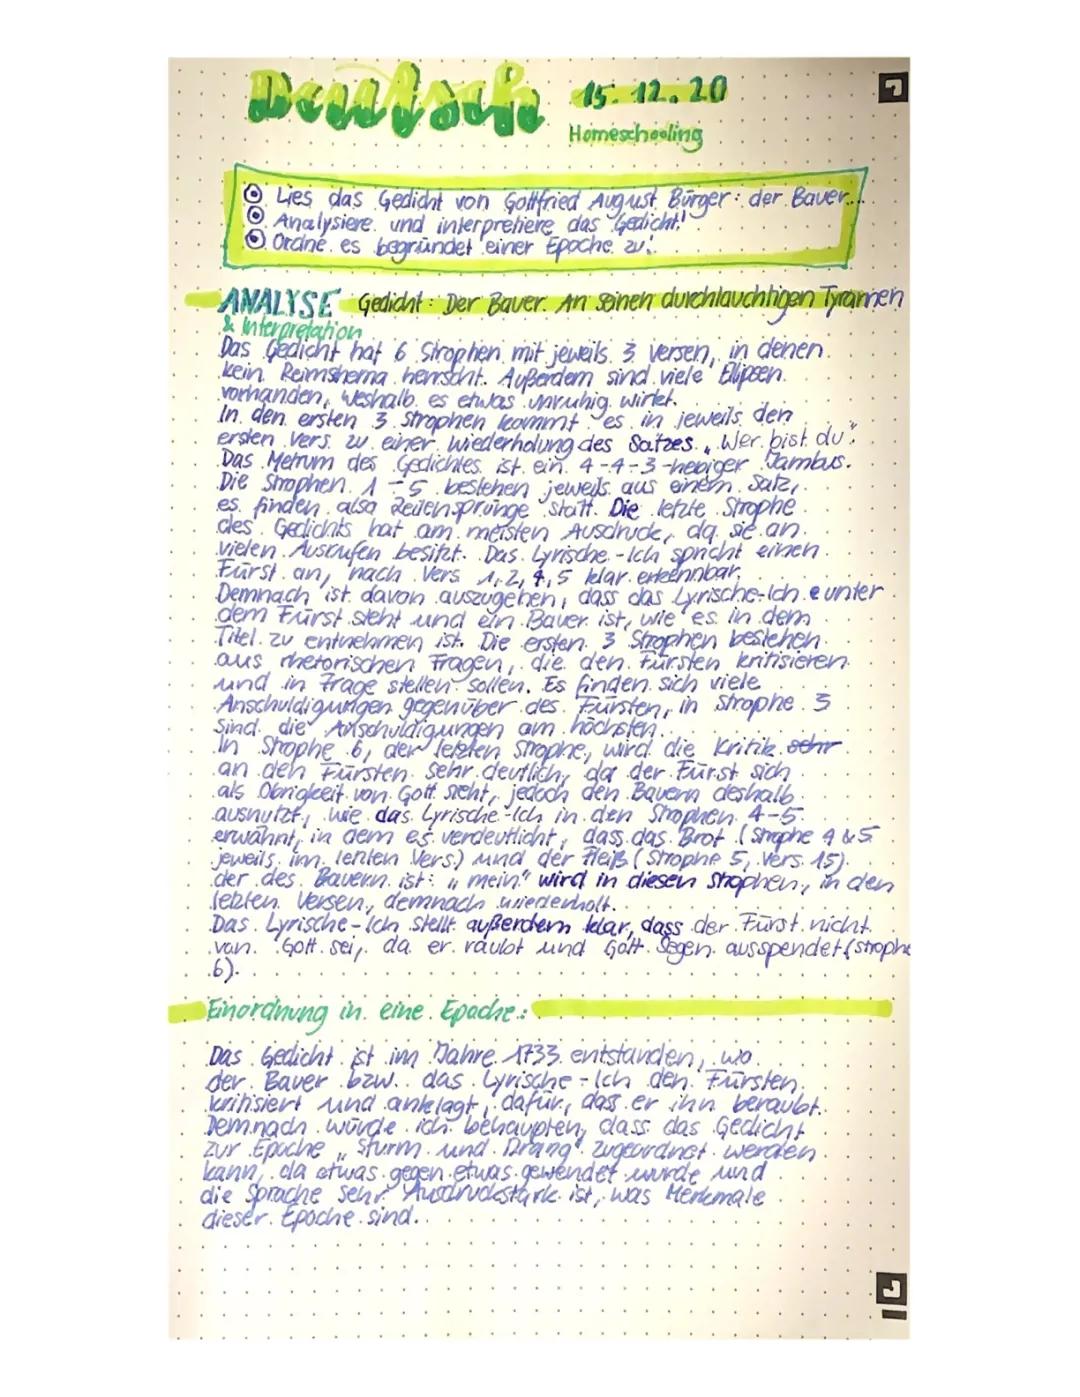 Deutsch 15.12.20
Homeschooling
Lies das Gedicht von Gottfried August Bürger: der Bauer...
Analysiere und interpretiere das Gedicht!
Ordne es begründet einer Epoche zu!
ANALYSE Gedicht: Der Bauer. An seinen durchlauchtigen Tyrannen
& Interpretation
Das Gedicht hat 6 Strophen mit jeweils 3 Versen, in denen
kein Reimshema herrscht. Außerdem sind viele Ellipsen
vorhanden, weshalb es etwas unruhig wirkt.
In den ersten 3 Strophen kommt es in jeweils den
ersten Vers zu einer Wiederholung des Satzes „Wer bist du".
Das Metrum des Gedichtes ist ein 4-4-3-hebiger Jambus.
Die Strophen 1-5 bestehen jeweils aus einem Satz,
es finden also Zeilensprünge statt. Die letzte Strophe
des Gedichts hat am meisten Ausdruck, da sie an
vielen Ausrufen besitzt. Das Lyrische-Ich spricht einen
Fürst an, nach Vers 1,2,4,5 klar erkennbar.
Demnach ist davon auszugehen, dass das Lyrische-Ich unter
dem Fürst steht und ein Bauer ist, wie es in dem
Titel zu entnehmen ist. Die ersten 3 Strophen bestehen
aus rhetorischen Fragen, die den Fürsten kritisieren
und in Frage stellen sollen. Es finden sich viele
Anschuldigungen gegenüber des Fürsten, in Strophe 3
sind die Anschuldigungen am höchsten.
In Strophe 6, der letzten Strophe, wird die Kritik sehr
an den Fürsten sehr deutlich, da der Fürst sich
als Obrigkeit von Gott sieht, jedoch den Bauern deshalb
ausnutzt, wie das Lyrische-Ich in den Strophen 4-5
erwähnt, in dem es verdeutlicht, dass das Brot (Strophe 4 & 5
jeweils im letzten Vers) und der Fleiß (Strophe 5, Vers 15)
der des Bauern ist: „mein" wird in diesen Strophen, in den
letzten Versen, demnach wiederholt.
Das Lyrische-Ich stellt außerdem klar, dass der Fürst nicht
von Gott sei, da er raubt und Gott Segen ausspendet (Strophe
6).
Einordnung in eine Epoche:
Das Gedicht ist im Jahre 1733 entstanden, wo
der Bauer bzw. das Lyrische-Ich den Fürsten
kritisiert und anklagt, dafür, dass er ihn beraubt.
Demnach würde ich behaupten, dass das Gedicht
zur Epoche „Sturm und Drang" zugeordnet werden
kann, da etwas gegen etwas gewendet wurde und
die Sprache sehr Ausdruckstark ist, was Merkmale
dieser Epoche sind.